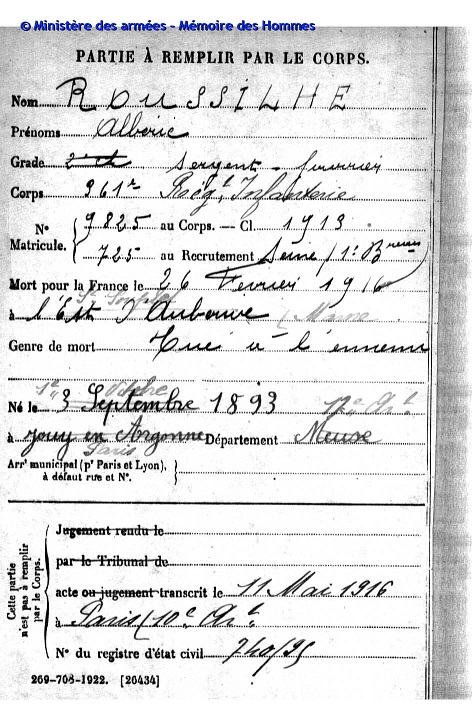 © Ministère des armées - Mémoire des Hommes
PARTIE À REMPLIR PAR LE CORPS.
Nom ROUSSILHE
Prénoms Albéric
Grade sergent - fourrier
Corps 361e Régt Infanterie
N° Matricule. { 9825 au Corps. — Cl. 1913
725 au Recrutement Seine / 1r Bureau
Mort pour la France le 26 Fevrier 1916
à l'Est d'Auberive (Marne
Genre de mort Tué à l'ennemi
1er Octobre
Né le 3 Septembre 1893 17e Art
à Jouy en Argonne Département Meuse
Paris
Arrt municipal (pr Paris et Lyon),
à défaut rue et N°. }
Cette partie n'est pas à remplir par le Corps.
Jugement rendu le
par le Tribunal de
acte ou jugement transcrit le 11 Mai 1916
à Paris (10e Art
N° du registre d'état civil 740/95
269-708-1922. [26434]